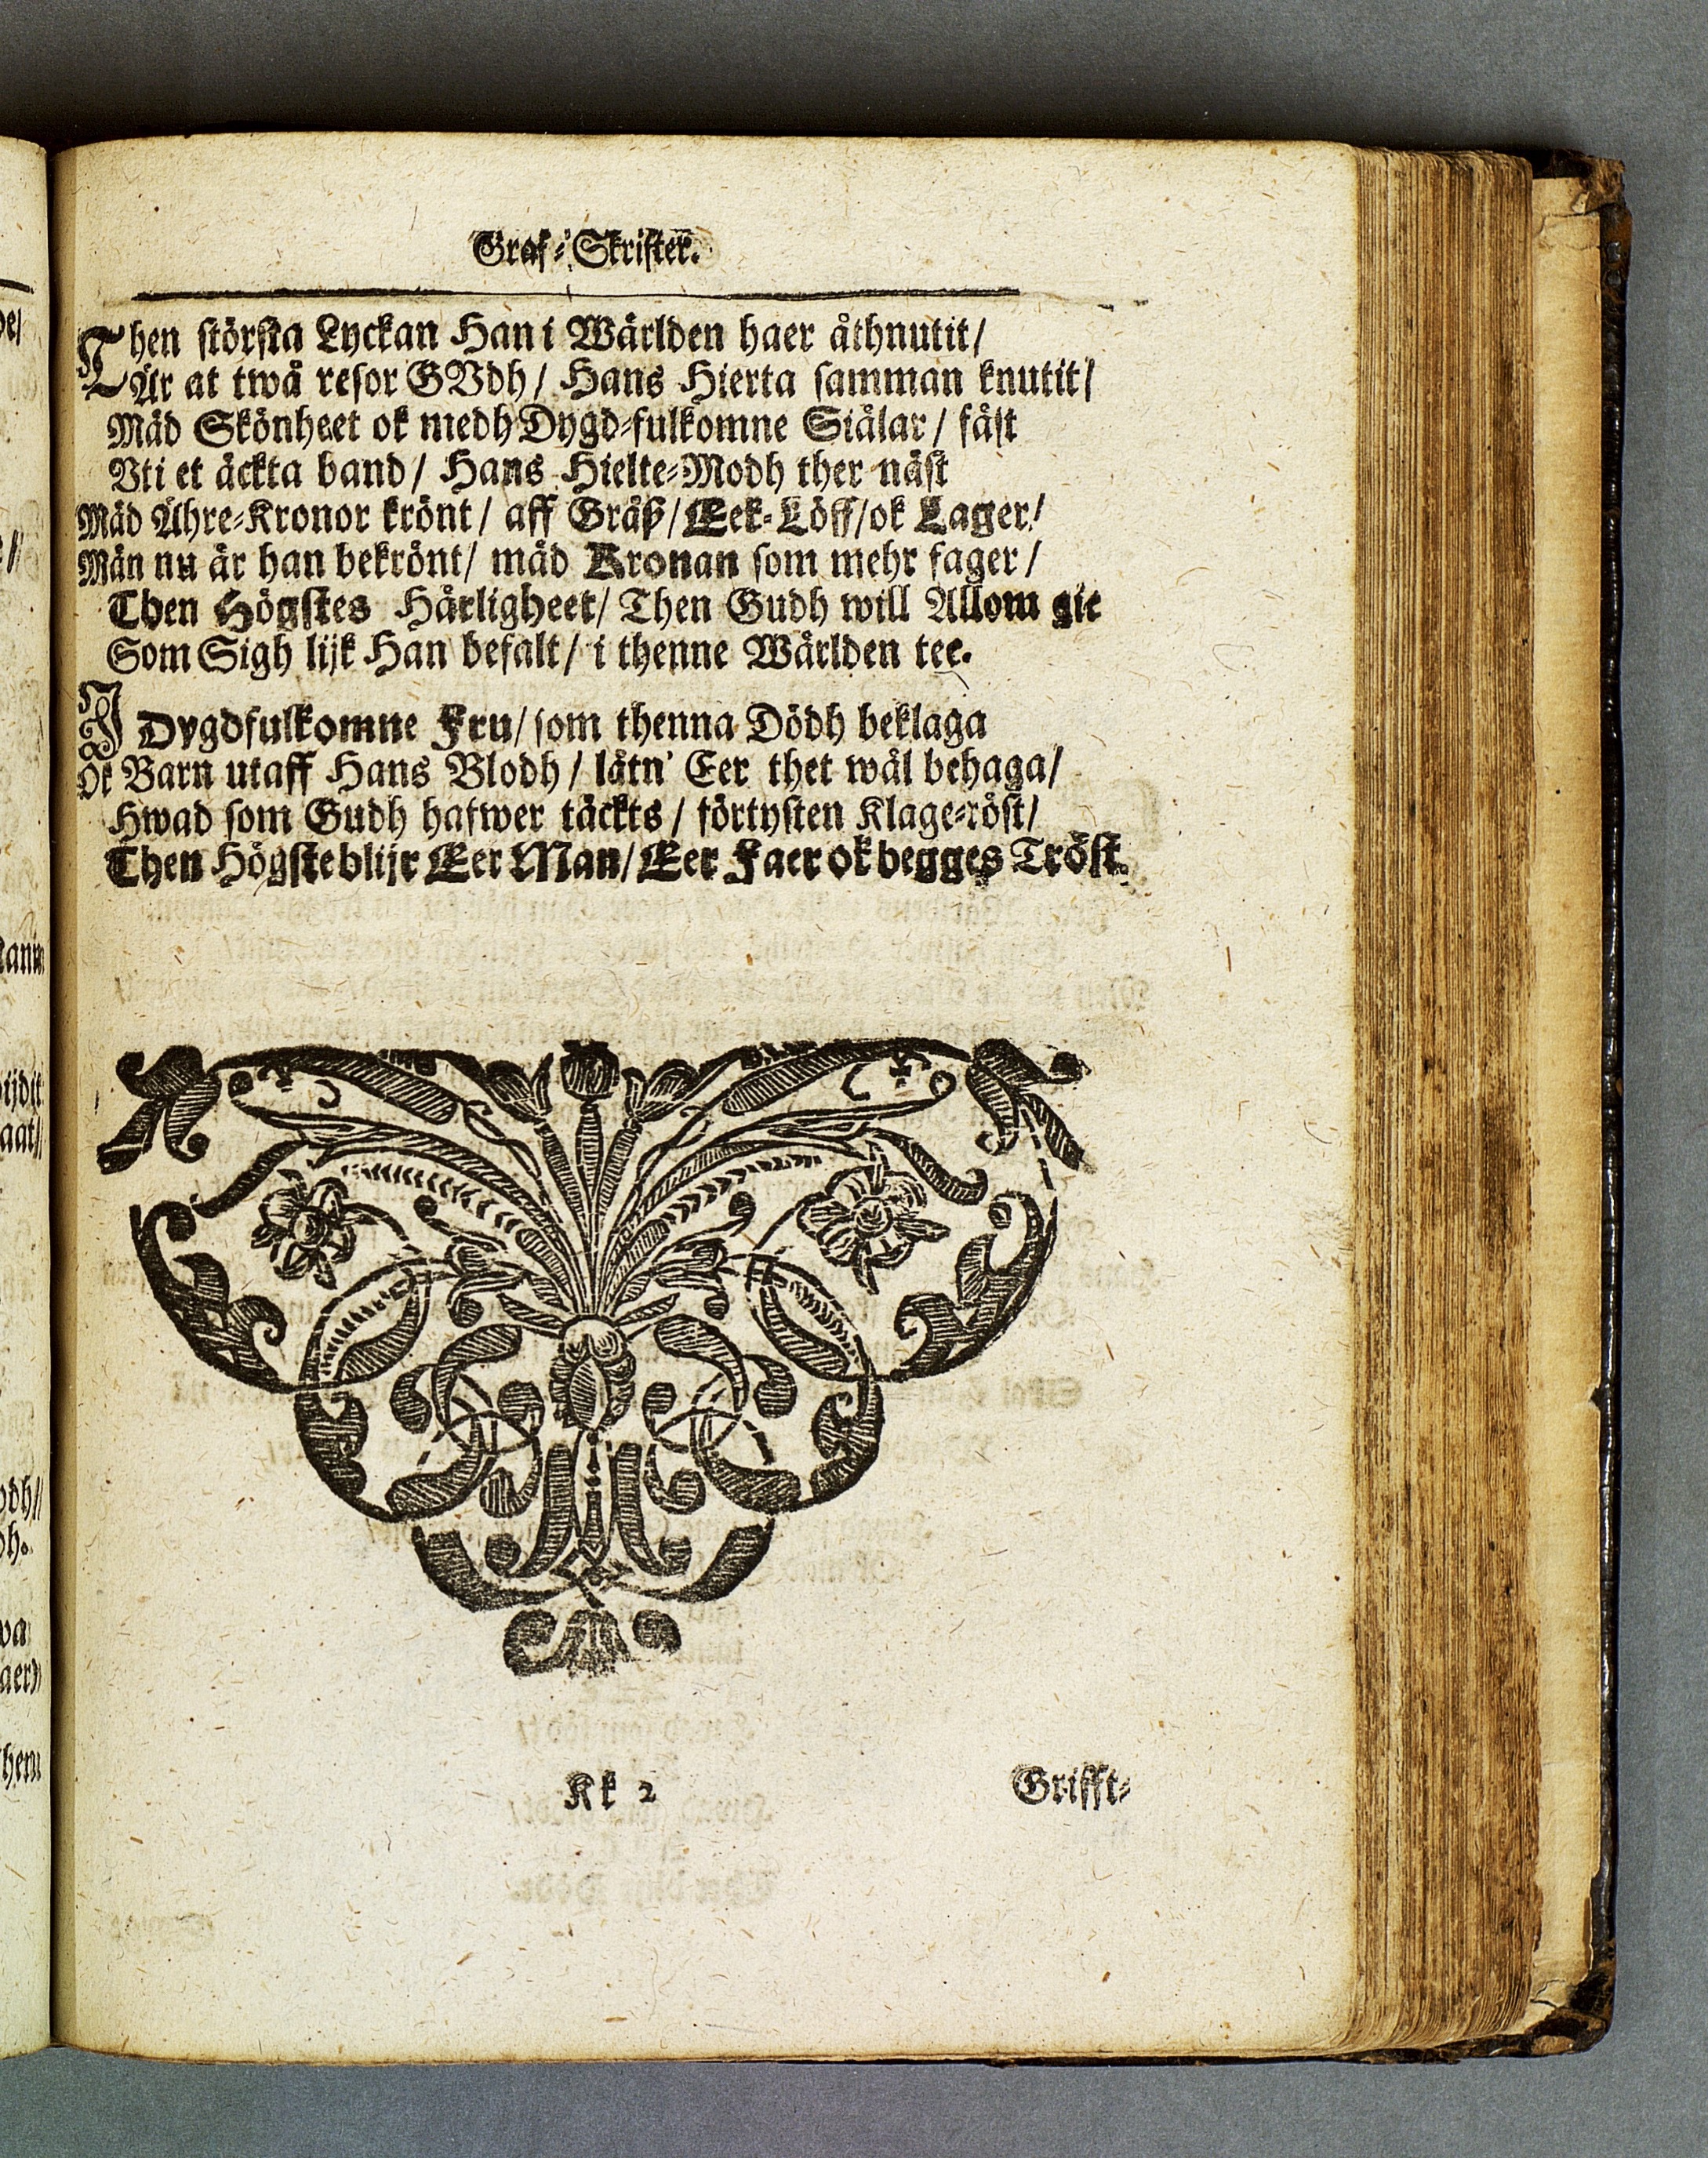 Graf-Skrifter.
Then största Lyckan Han i Wärlden haer åthnutit/
Är at twå resor GVdh/ Hans Hierta samman knutit/
Mäd Skönheet ok medh Dygd-fulkomne Siälar/ fäst
Vti et äckta band/ Hans Hielte-Modh ther näst
Mäd Ähre-Kronor krönt/ aff Gräß/ Eek-Löff/ ok Lager/
Män nu är han bekrönt/ mäd Kronan som mehr fager/
Then Högstes Härligheet/ Then Gudh will Allom gie
Som Sigh lijk Han befalt/ i thenne Wärlden tee.
I Dygdfulkomne Fru/ som thenna Dödh beklaga
Ok Barn utaff Hans Blodh/ låtn' Eer thet wäl behaga/
Hwad som Gudh hafwer täckts/ förtysten Klage-röst/
Then Högste blijr Eer Man/ Eer Faer ok begges Tröst.
Kk 2
Grifft-